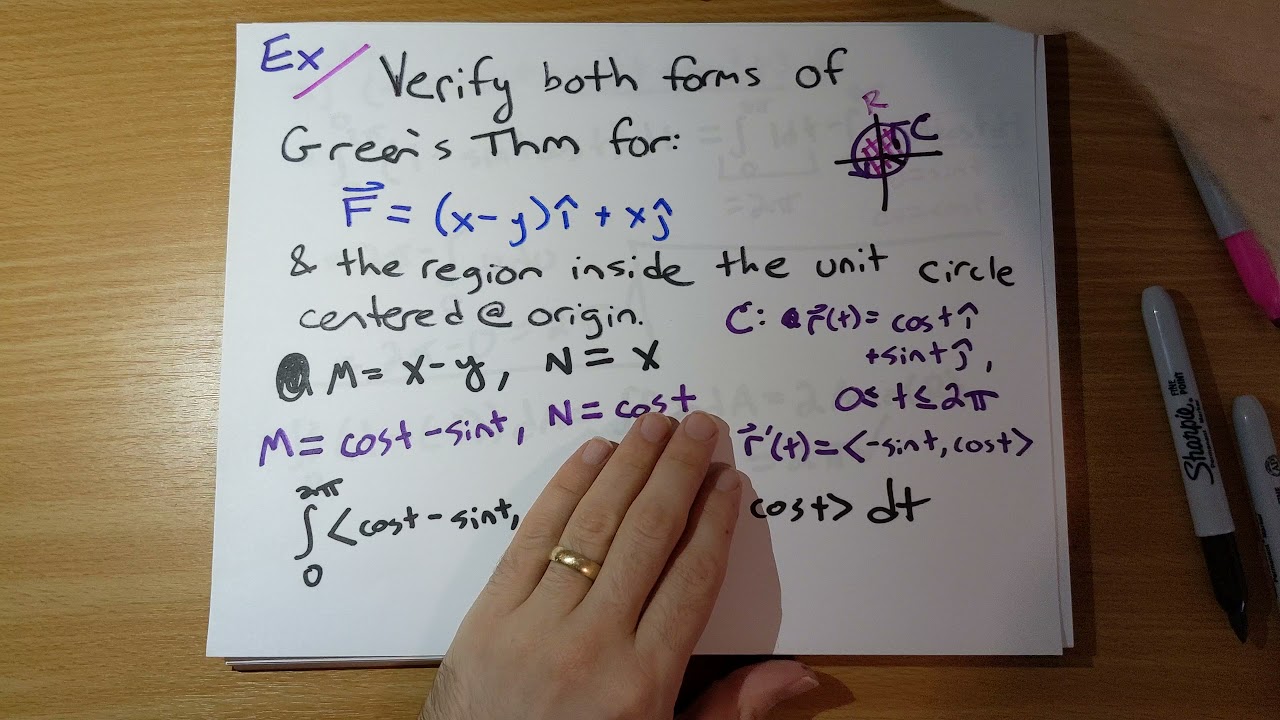 Ex/ Verify both forms of
Green's Thm for:
R
C
F⃗ = (x-y)î + xĵ
& the region inside the unit circle
centered @ origin.
C: r⃗(t) = cost î
+ sint ĵ,
0 ≤ t ≤ 2π
M = x-y, N = x
M = cost - sint, N = cost
r⃗'(t) = <-sint, cost>
∫₀^2π <cost - sint, cost> dt
Sharpie
THE POINT